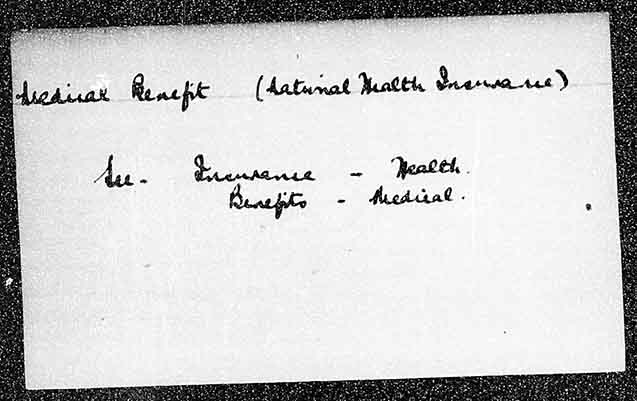 Medical Benefit (National Health Insurance)
See - Insurance - Health.
Benefits - Medical.